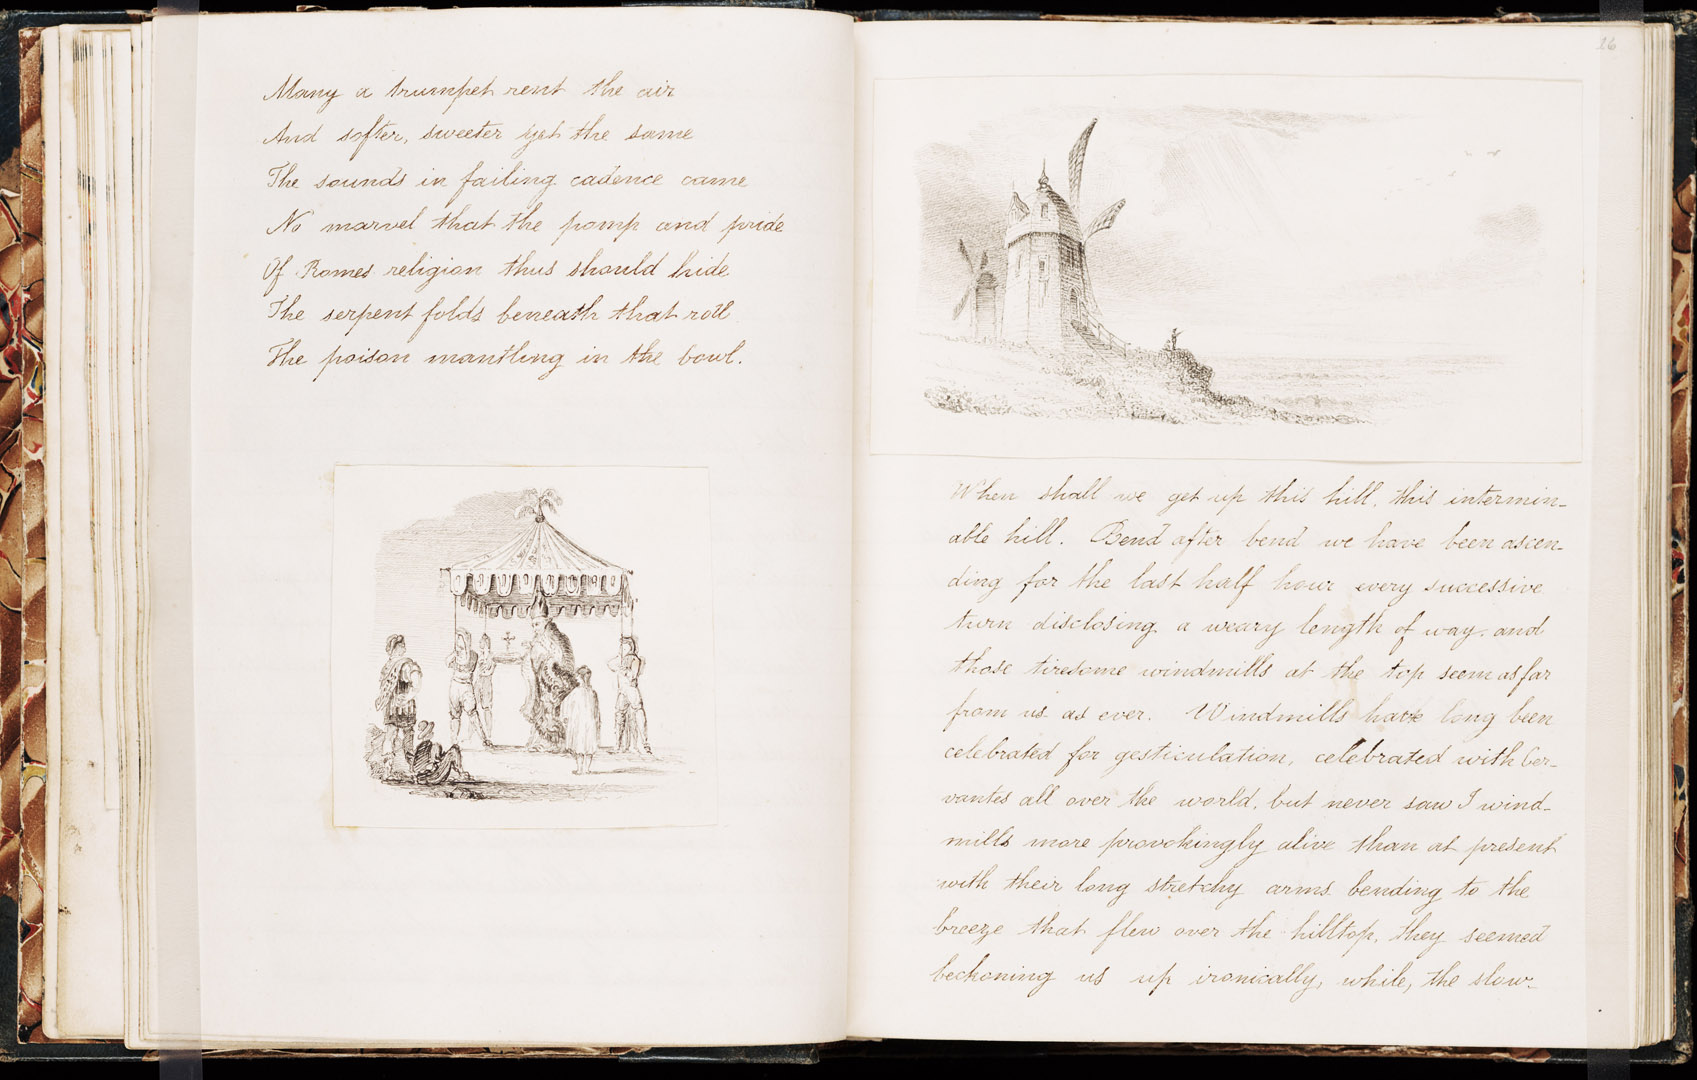 Many a trumpet rent the air
And softer, sweeter yet the same
The sounds in failing cadence came
No marvel that the pomp and pride
Of Romes religion thus should hide
The serpent folds beneath that roll
The poison mantling in the bowl.
26
When shall we get up this hill, this intermin-
able hill. Bend after bend we have been ascen-
ding for the last half hour every successive
turn disclosing a weary length of way. and
those tiresome windmills at the top seem as far
from us as ever. Windmills have long been
celebrated for gesticulation, celebrated with Cer-
vantes all over the world, but never saw I wind-
mills more provokingly alive than at present
with their long stretchy arms bending to the
breeze that flew over the hilltop, they seemed
beckoning us up ironically, while, the slow-